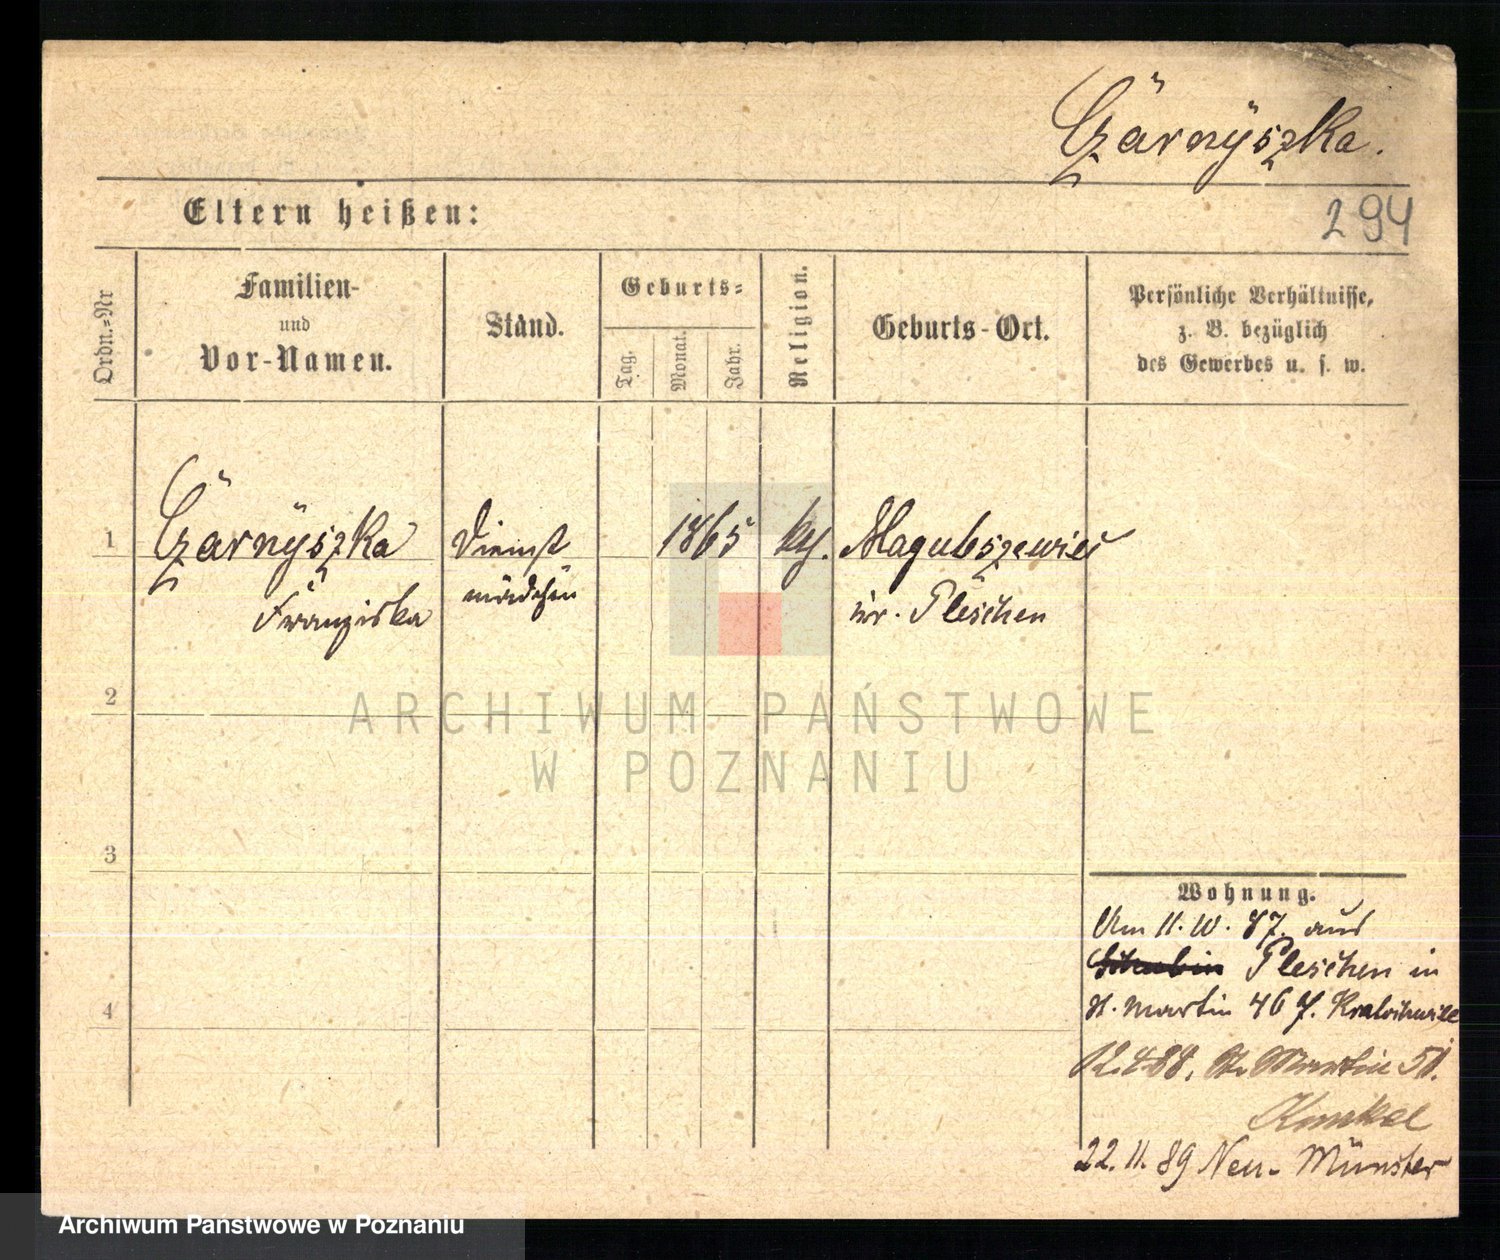 Czarnyszka.
Eltern heißen:
294
Ordn.=Nr
Familien-
und
Vor-Namen.
Stand.
Geburts=
Tag.
Monat.
Jahr.
Religion.
Geburts-Ort.
Persönliche Verhältnisse,
z. B. bezüglich
des Gewerbes u. s. w.
1
Czarnyszka
Franziska
Dienst
mädchen
1865
Kr. Pleschen
2
ARCHIWUM PAŃSTWOWE
W POZNANIU
3
Wohnung.
Am 11. 10. 87. aus
Pleschen in
St. Martin 46
4
St. Martin
22. 11. 89 Neu-Münster
Archiwum Państwowe w Poznaniu